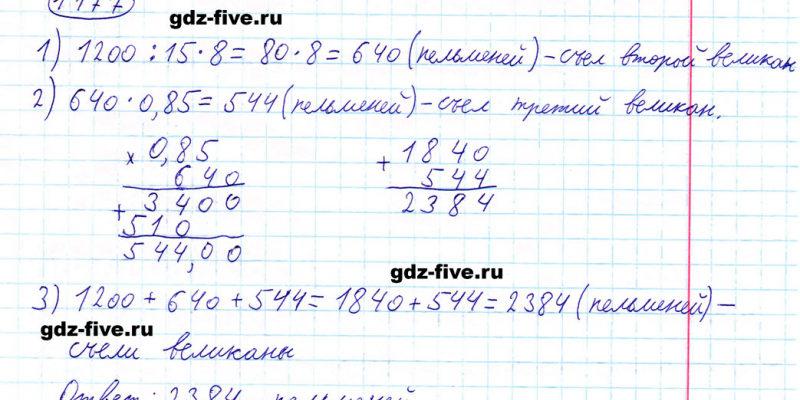 1177
gdz-five.ru
1) 1200 : 15 · 8 = 80 · 8 = 640 (пельменей) – съел второй великан
2) 640 · 0,85 = 544 (пельменей) – съел третий великан.
× 0,85
640
+ 3400
510
544,00
+ 1840
544
2384
gdz-five.ru
3) 1200 + 640 + 544 = 1840 + 544 = 2384 (пельменей) –
gdz-five.ru
съели великаны
Ответ: 2384 пельменей